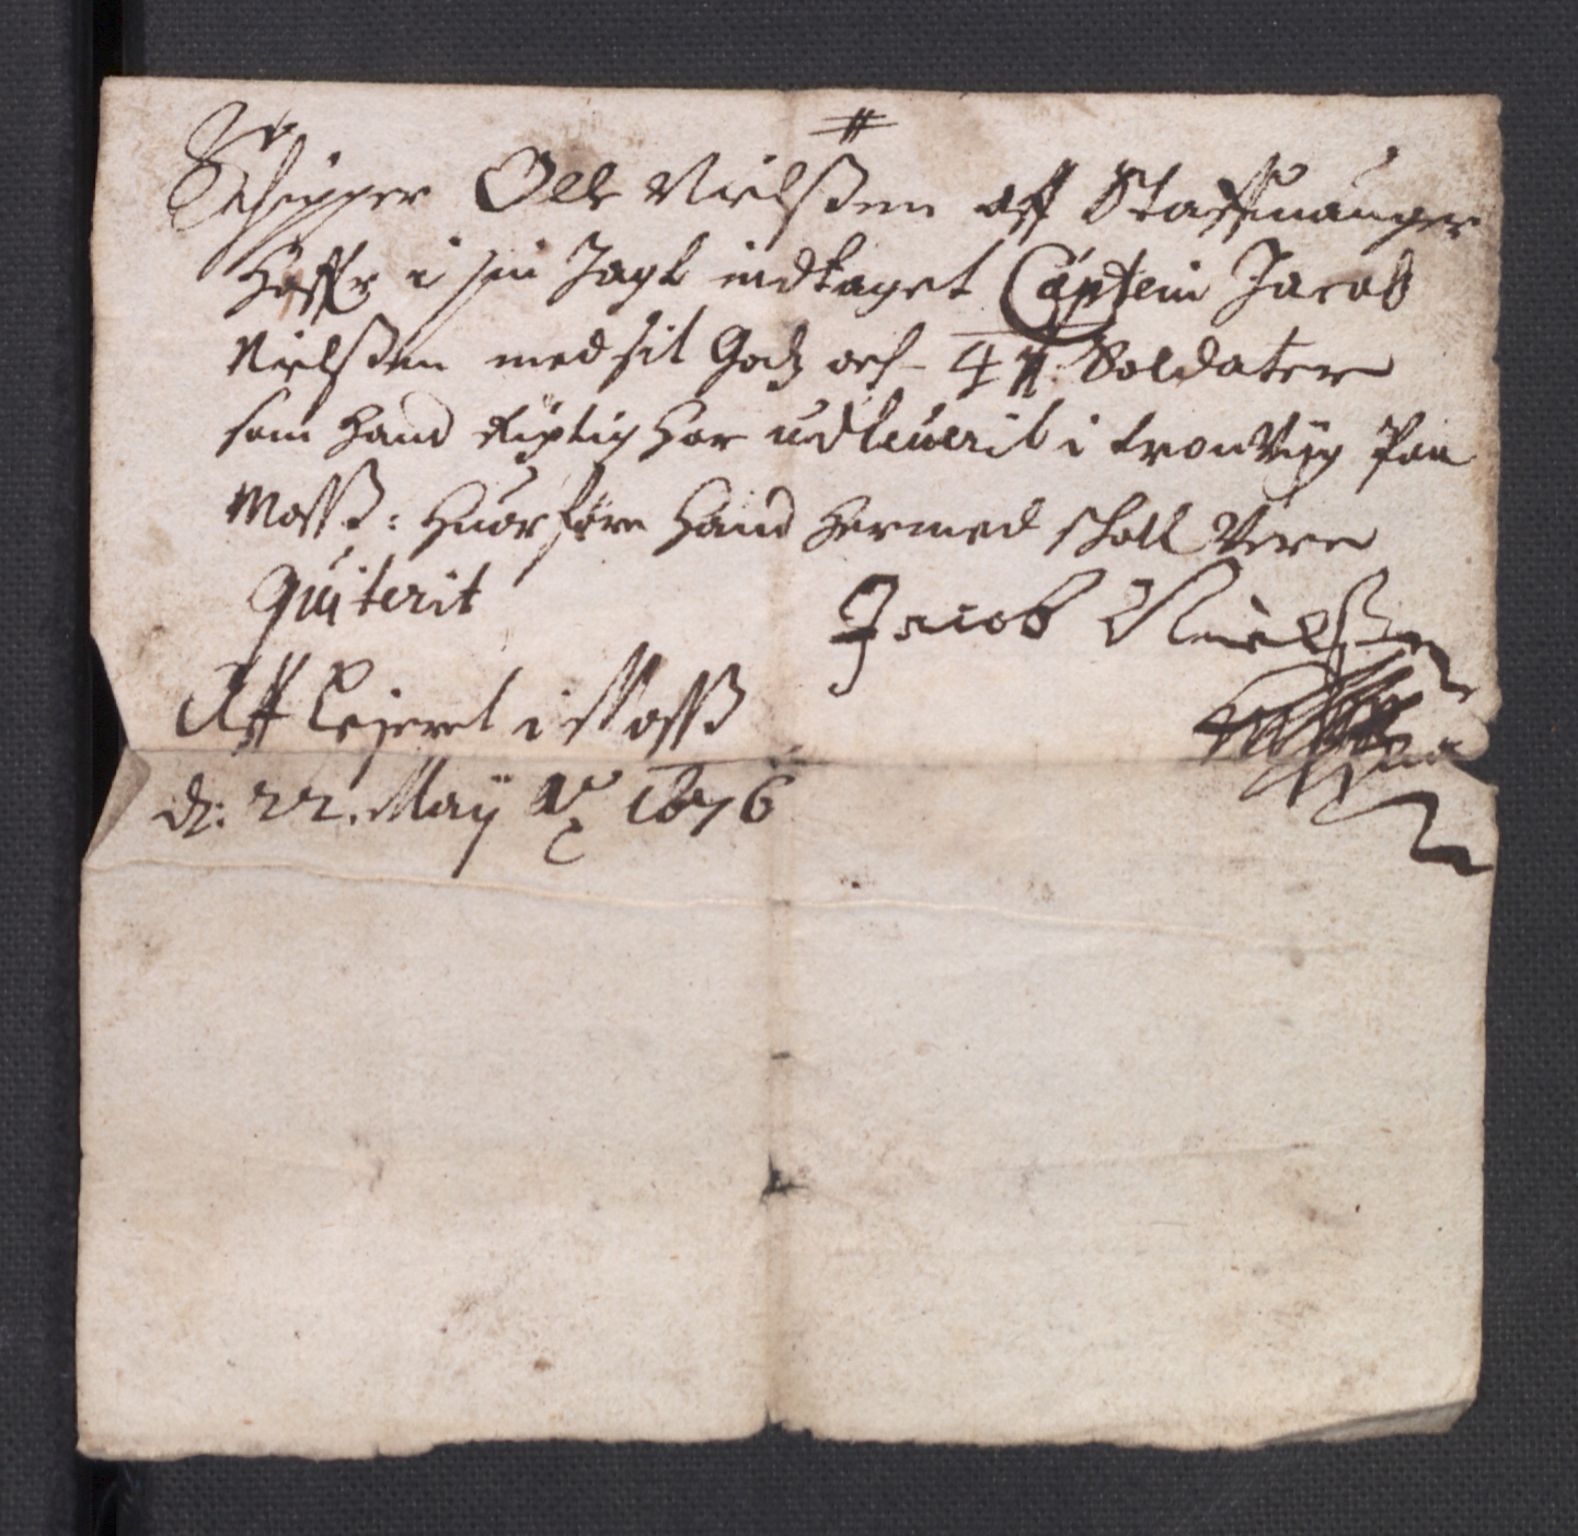 Schipper Olle Nielßen aff Staffuanger
Haffr i sin Jagt indtaget Captein Jacob
Nielßen med sit Godz och 47 Soldater
som hand Rigtig har udleuerit i Paa
Moss: Huor fore Hand hermed skall Vere
Quiterit
Jacob Nielßen
Aff Leyeret i Moss
d: 22. Maÿ Ao 1676